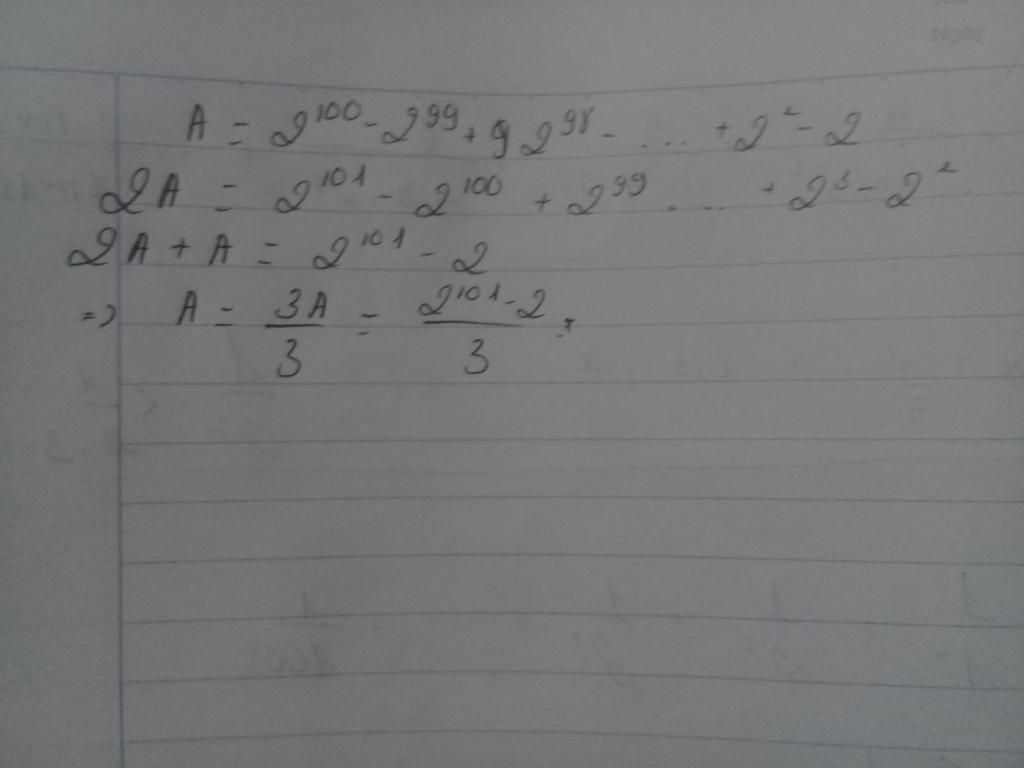 Ngày
A = 2^100 - 2^99 + 9 2^98 - ... + 2^2 - 2
2A = 2^101 - 2^100 + 2^99 ... + 2^3 - 2^2
2A + A = 2^101 - 2
=> A = 3A/3 = (2^101 - 2)/3 .